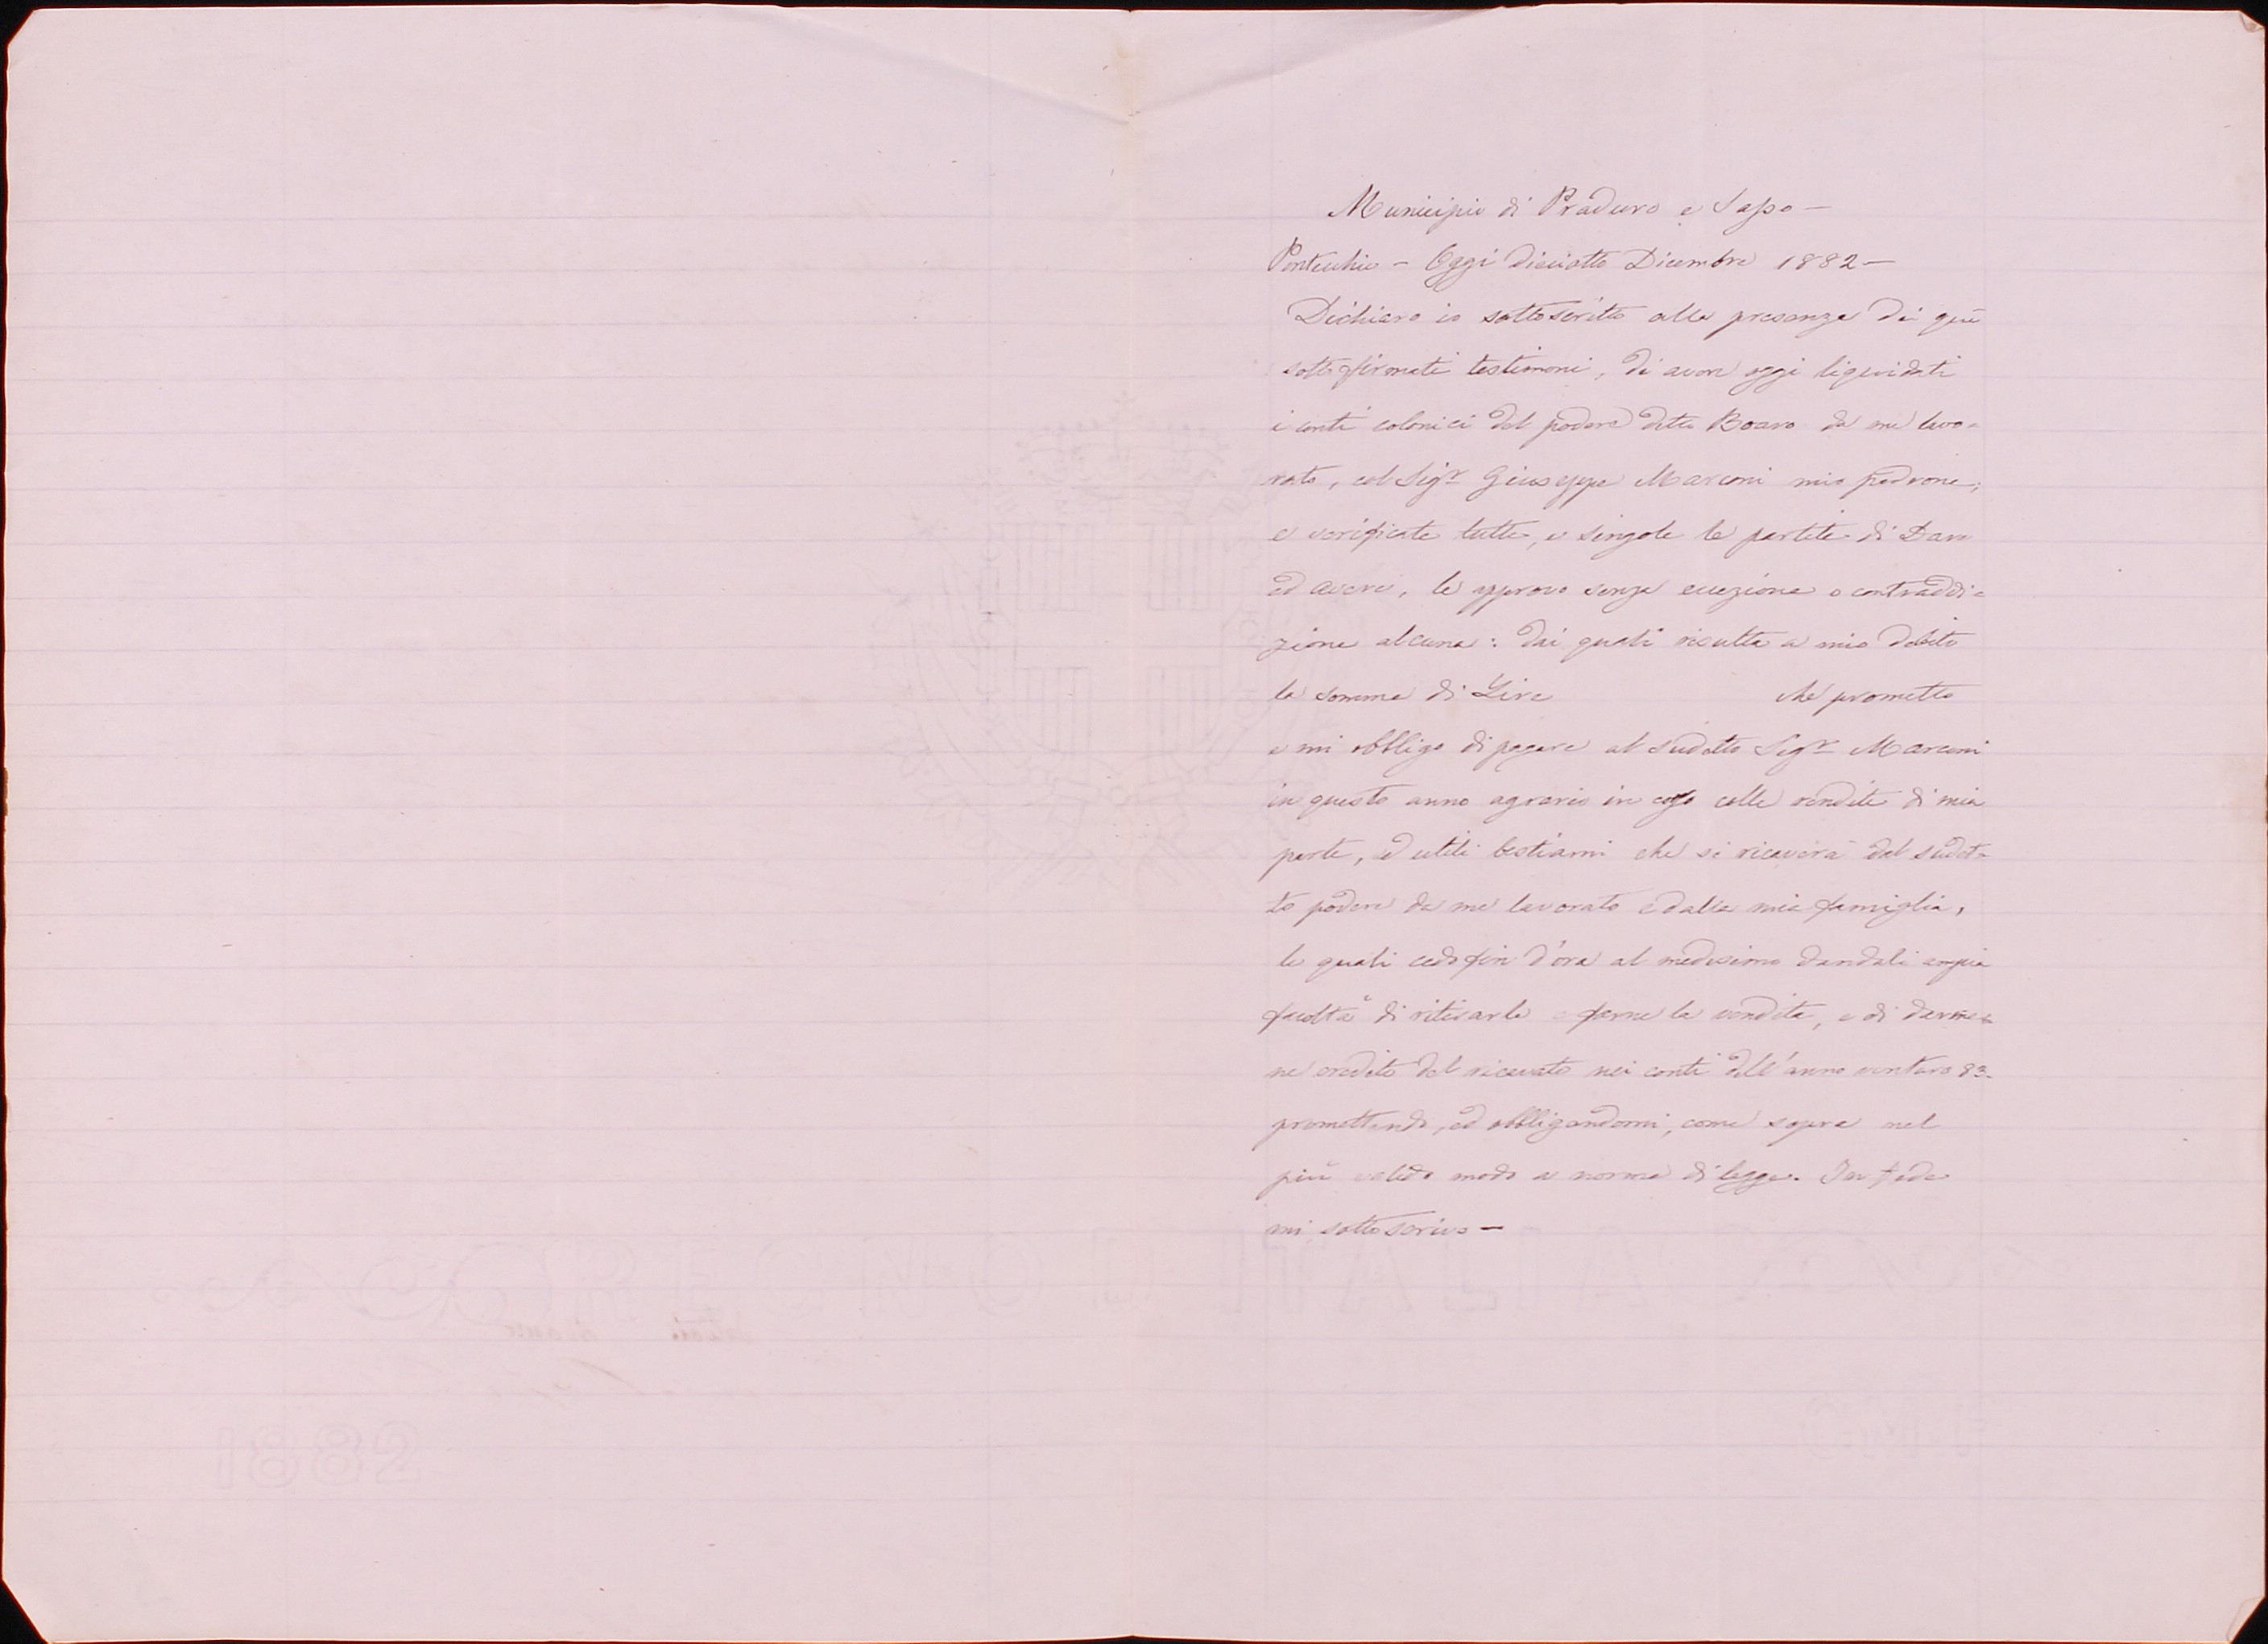 Municipio di Praduro e Sasso —
Pontecchio — Oggi dieciotto Dicembre 1882 —
Dichiaro io sottoscritto alla presenza dei quì
sotto firmati testimoni, di avere oggi liquidati
i conti colonici del podere detto Boaro da me lavo=
rato, col Sigr Giuseppe Marconi mio padrone;
e verificate tutte, e singole le partite di Dare
ed avere, le approvo senza eccezione o contraddi=
zione alcuna: dai quali risulta a mio debito
la somma di Lire che prometto
e mi obbligo di pagare al sudetto Sigr Marconi
in questo anno agrario in corso colle rendite di mia
parte, ed utili bestiami che si ricaverà dal sudet=
to podere da me lavorato e dalla mia famiglia,
le quali cedo fin d'ora al medesimo dandoli ampia
facoltà di ritirarle e farne la vendita, e di darme=
ne credito del ricavato nei conti dell'anno venturo 83.
promettendo, ed obbligandomi, come sopra nel
più valido modo a norma di legge. In fede
mi sottoscrivo —
1882